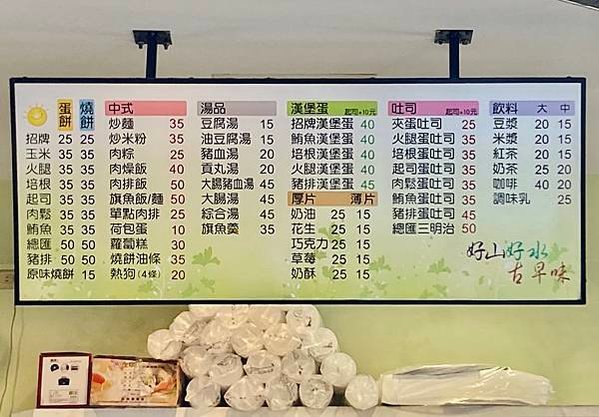 蛋餅 燒餅
招牌 25 25
玉米 35 35
火腿 35 35
培根 35 35
起司 35 35
肉鬆 35 35
鮪魚 35 35
總匯 50 50
豬排 50 50
原味燒餅 15
中式
炒麵 35
炒米粉 35
肉粽 25
肉燥飯 40
肉排飯 50
旗魚飯/麵 50
單點肉排 25
荷包蛋 10
蘿蔔糕 30
燒餅油條 35
熱狗(4條) 20
湯品
豆腐湯 15
油豆腐湯 15
豬血湯 20
貢丸湯 20
大腸豬血湯 45
大腸湯 45
綜合湯 45
旗魚羹 35
漢堡蛋 起司+10元
招牌漢堡蛋 40
鮪魚漢堡蛋 40
培根漢堡蛋 40
火腿漢堡蛋 40
豬排漢堡蛋 45
厚片 薄片
奶油 25 15
花生 25 15
巧克力 25 15
草莓 25 15
奶酥 25 15
吐司 起司+10元
夾蛋吐司 25
火腿蛋吐司 35
培根蛋吐司 35
起司蛋吐司 35
肉鬆蛋吐司 35
鮪魚蛋吐司 35
豬排蛋吐司 45
總匯三明治 50
飲料 大 中
豆漿 20 15
米漿 20 15
紅茶 20 15
奶茶 25 20
咖啡 40 20
調味乳 25
好山好水
古早味